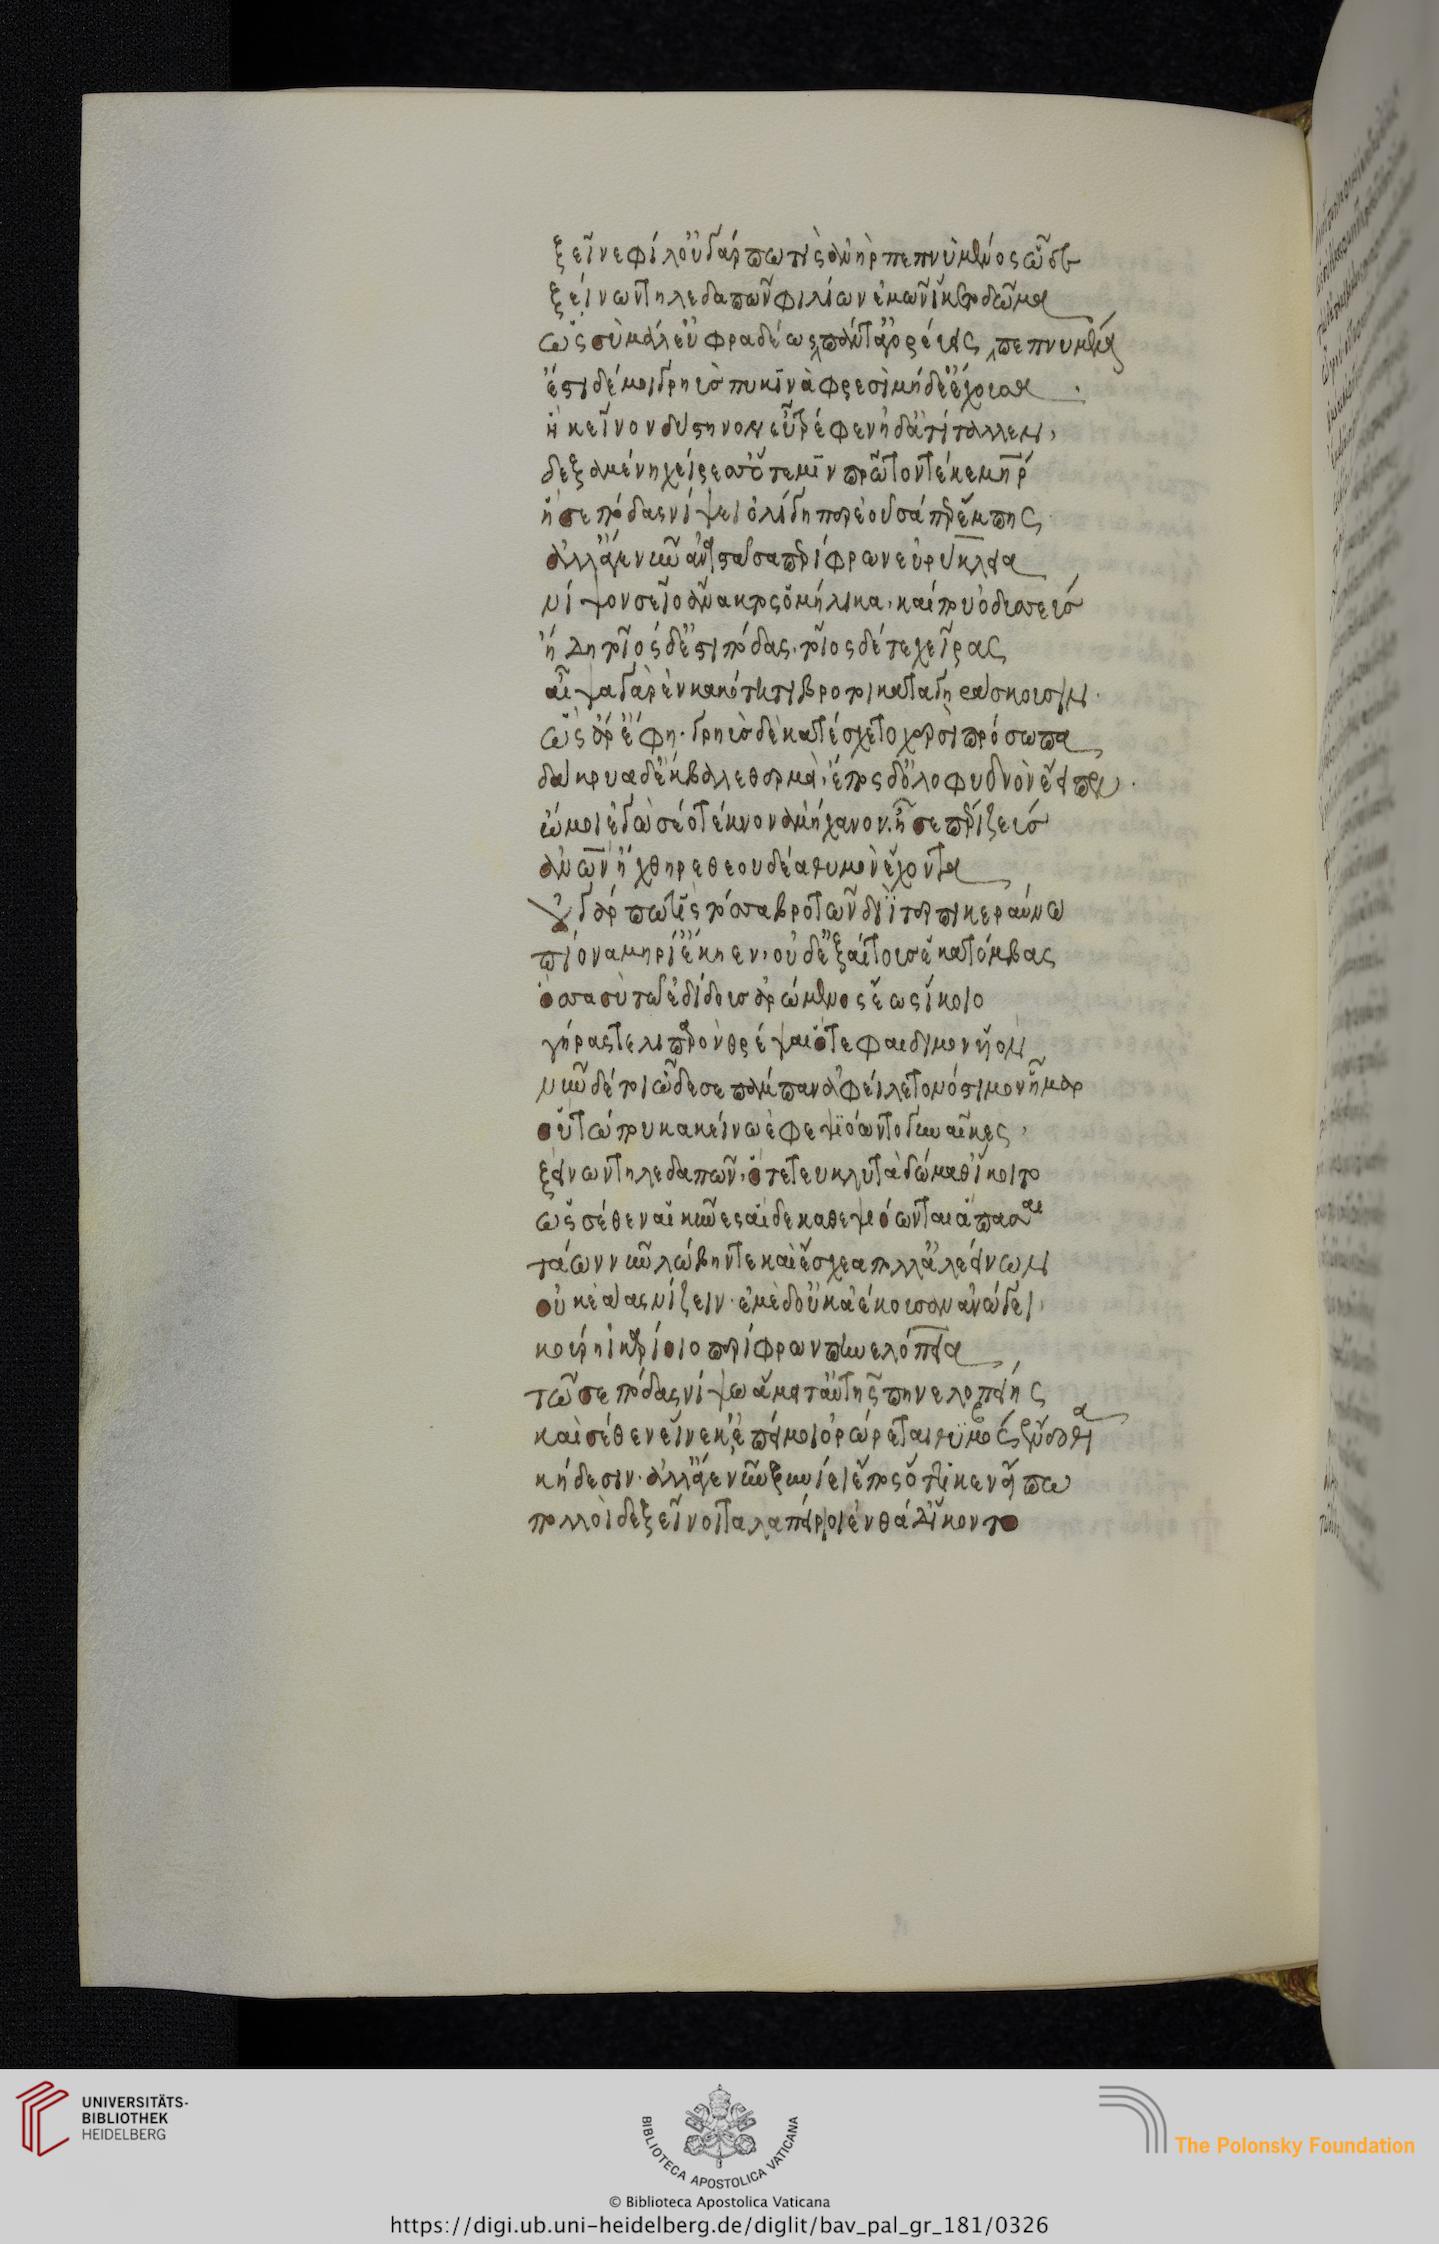 ξεῖνε φίλ' οὐ γάρ πω τὶς ἀνὴρ πεπνυμένος ὧδε
ξείνων τηλεδαπῶν φιλίων ἐμὸν ἵκετο δῶμα
ὡς σὺ μάλ' εὐφραδέως πάντ' ἀγορεύεις πεπνυμένα
ἔστι δέ μοι γρηῢς πυκινὰ φρεσὶ μήδε' ἔχουσα
ἣ κεῖνον δύστηνον εὖ τρέφεν ἠδ' ἀτίταλλεν,
δεξαμένη χείρεσσ' ὅτε μῖν πρῶτον τέκε μήτηρ
ἥ σε πόδας νίψει ὀλιγηπελέουσά περ ἔμπης
ἀλλ' ἄγε νῦν ἀνστᾶσα περίφρων εὐρύκλεια
νίψον σεῖο ἄνακτος ὁμήλικα, καί που ὀδυσσεύς
ἤδη τοῖος δ' ἐστὶ πόδας, τοῖος δέ τε χεῖρας
αἶψα γὰρ ἐν κακότητι βροτοὶ καταγηράσκουσιν.
ὣς ἄρ' ἔφη. γρηῢς δὲ κατέσχετο χερσὶ πρόσωπα
δάκρυα δ' ἔκβαλε θερμὰ, ἔπος δ' ὀλοφυδνὸν ἔειπεν.
ὤμοι ἐγὼ σέο τέκνον ἀμήχανον. ἦ σε περὶ ζεύς
ἀνθρώπων ἤχθηρε θεουδέα θυμὸν ἔχοντα
οὐ γάρ πώ τις τόσσα βροτῶν διῒ τερπικεραύνω
πίονα μηρί' ἔκηεν, οὐδ' ἐξαίτους ἑκατόμβας
ὅσσα σὺ τῷ ἐδίδους ἀρώμενος ἕως ἵκοιο
γῆράς τε λιπαρὸν θρέψαιό τε φαίδιμον υἱόν
νῦν δέ τοι ὧδέ σε πάμπαν ἀφείλετο νόστιμον ἦμαρ
οὕτω που κἀκείνω ἐφεψιόωντο γυναῖκες,
ξείνων τηλεδαπῶν, ὅτε τευ κλυτὰ δώμαθ' ἵκοιτο
ὡς σέθεν αἱ κύνες αἵδε καθεψιόωνται ἅπασαι
τάων νῦν λώβην τε καὶ αἴσχεα πολλ' ἀλεείνων
οὐκ ἐάας νίζειν. ἐμὲ δ' οὐκ ἀέκουσαν ἀνώγει,
κούρη ἰκαρίοιο περίφρων πηνελόπεια
τῶ σε πόδας νίψω ἅμα τ' αὐτῆς πηνελοπείης
καὶ σέθεν εἵνεκ' ἐπεί μοι ὀρώρεται θυμὸς ἔνδοθι
κήδεσιν. ἀλλ' ἄγε νῦν ξυνίει ἔπος ὅττί κεν εἴπω
πολλοὶ δὲ ξεῖνοι ταλαπείριοι ἐνθάδ' ἵκοντο
UNIVERSITÄTS-
BIBLIOTHEK
HEIDELBERG
BIBLIOTECA APOSTOLICA VATICANA
The Polonsky Foundation
© Biblioteca Apostolica Vaticana
https://digi.ub.uni-heidelberg.de/diglit/bav_pal_gr_181/0326